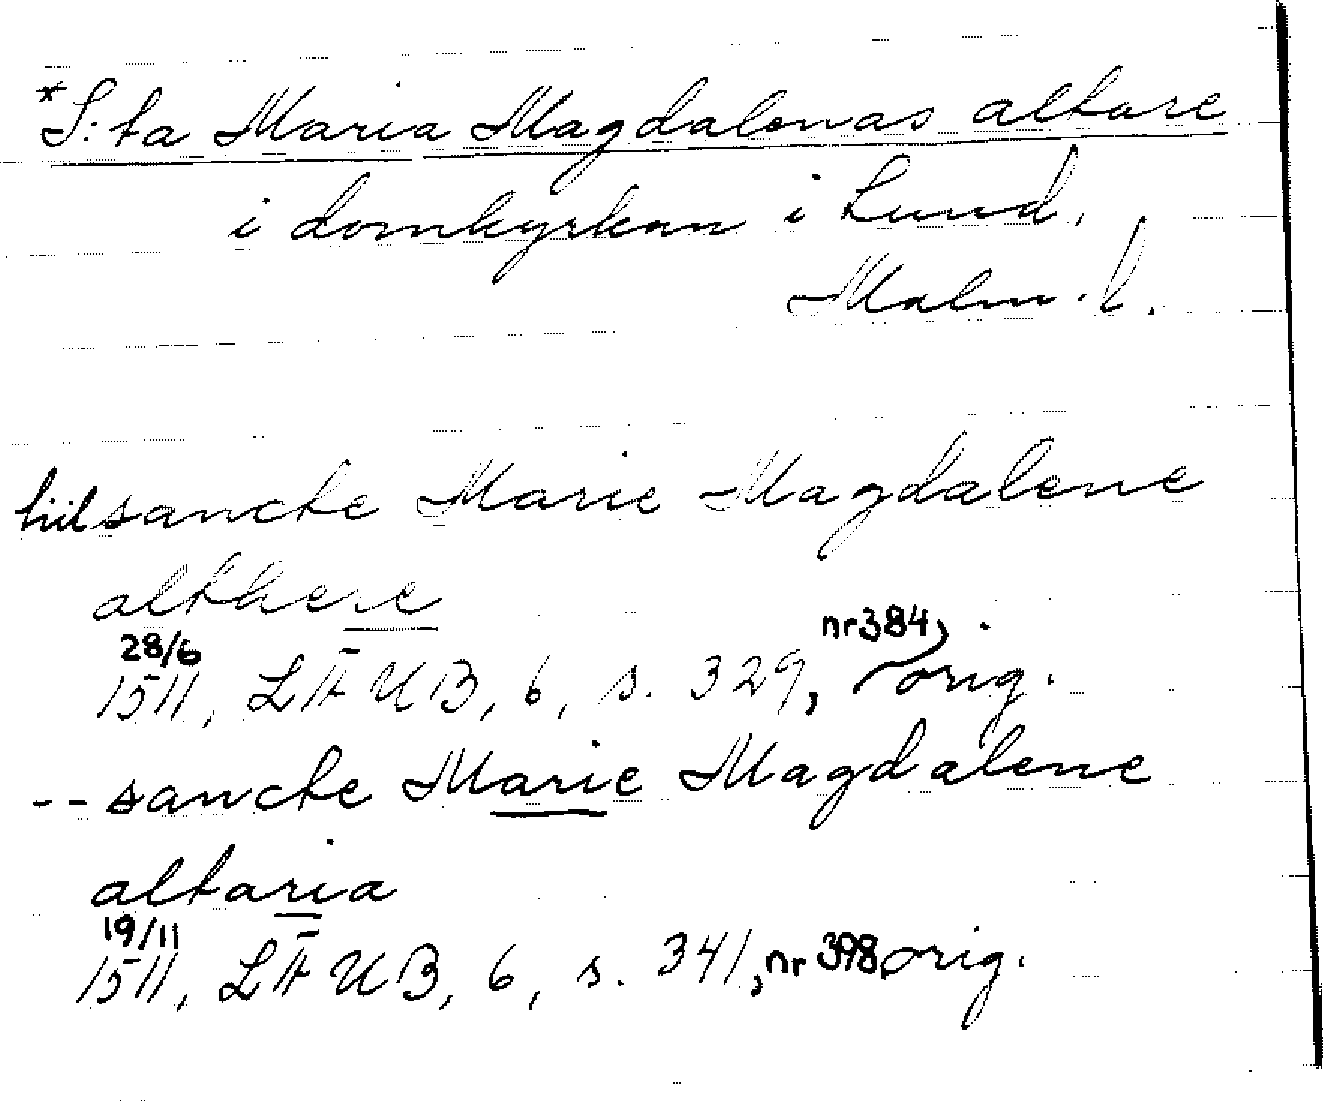 *S:ta Maria Magdalenas altare
i domkyrkan i Lund.
Malm. l.
til sancte Marie Magdalene
althere
28/6
1511, LÄUB, 6, s. 329, nr 384, orig.
-- sancte Marie Magdalene
altaria
19/11
1511, LÄUB, 6, s. 341, nr 398, orig.